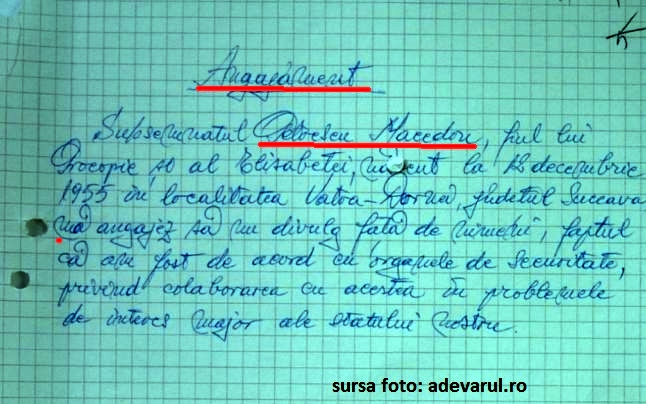 Angajament
Subsemnatul Odoescu Macedon, fiul lui
Procopie, și al Elisabetei, născut la 12 decembrie
1955 în localitatea Vatra-Dornei, județul Suceava
mă angajez să nu divulg față de nimeni, faptul
că am fost de acord cu organele de securitate,
privind colaborarea cu acestea în problemele
de interes major ale statului nostru.
sursa foto: adevarul.ro